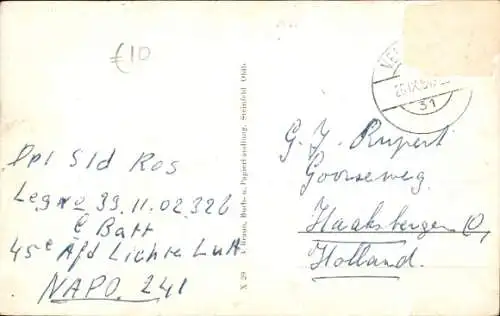 €10
Dpl Sld Ros
Leg no 33.11.02.326
C Batt
45e Afd Lichte LuA
NAPO. 241
X 29 Braun, Buch- u. Papierhandlung, Steinfeld, Oldb.
31
G. J. Rupert
Goorseweg.
Haaksbergen O,
Holland.